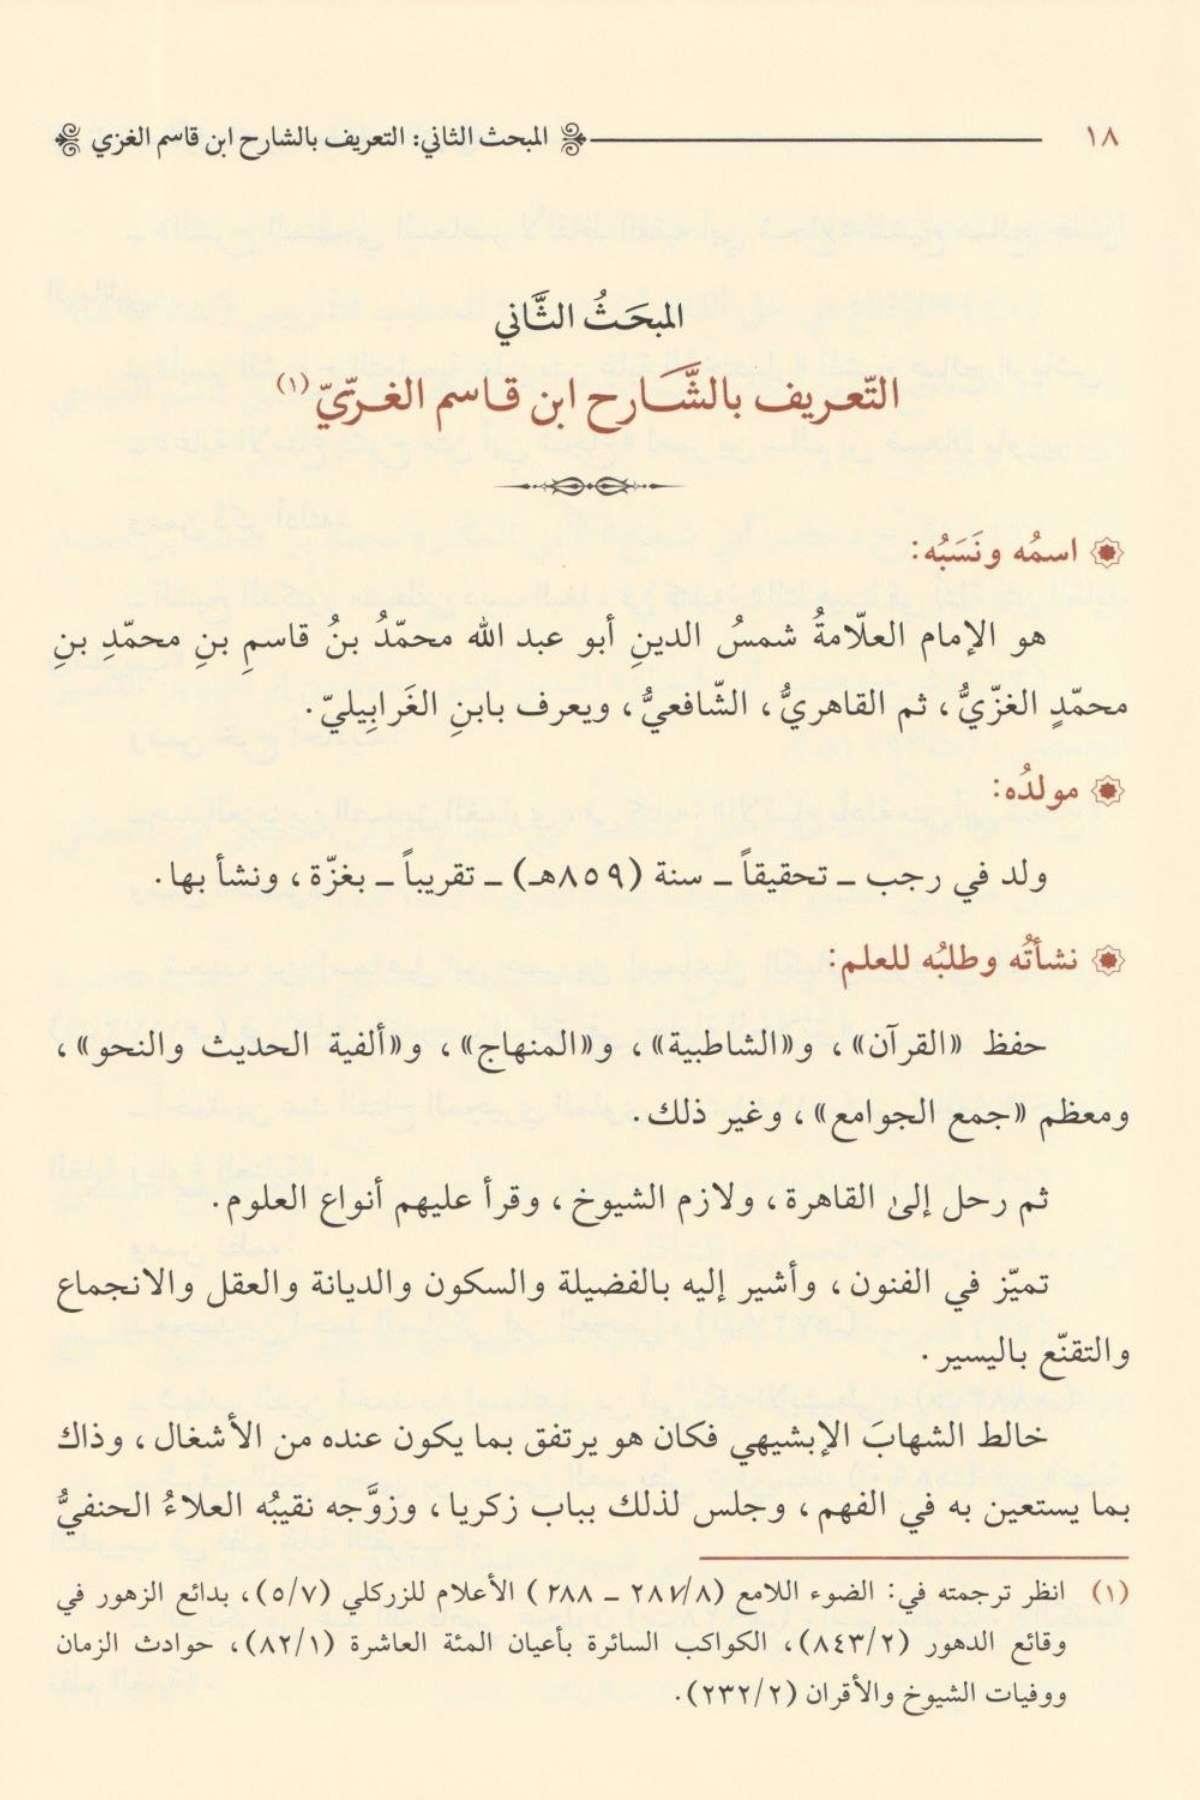 ١٨ المبحث الثاني: التعريف بالشارح ابن قاسم الغزي
المبحَثُ الثَّاني
التّعريف بالشَّارح ابن قاسم الغزّيّ (١)
اسمُه ونَسَبُه:
هو الإمام العلّامةُ شمسُ الدينِ أبو عبد الله محمّدُ بنُ قاسمِ بنِ محمّدِ بنِ
محمّدٍ الغزّيُّ، ثم القاهريُّ، الشّافعيُّ، ويعرف بابنِ الغَرابِيليّ.
مولدُه:
ولد في رجب ـ تحقيقاً ـ سنة (٨٥٩هـ) ـ تقريباً ـ بغزّة، ونشأ بها.
نشأتُه وطلبُه للعلم:
حفظ «القرآن»، و«الشاطبية»، و«المنهاج»، و«ألفية الحديث والنحو»،
ومعظم «جمع الجوامع»، وغير ذلك.
ثم رحل إلىٰ القاهرة، ولازم الشيوخ، وقرأ عليهم أنواع العلوم.
تميّز في الفنون، وأشير إليه بالفضيلة والسكون والديانة والعقل والانجماع
والتقنّع باليسير.
خالط الشهابَ الإبشيهي فكان هو يرتفق بما يكون عنده من الأشغال، وذاك
بما يستعين به في الفهم، وجلس لذلك بباب زكريا، وزوَّجه نقيبُه العلاءُ الحنفيُّ
(١) انظر ترجمته في: الضوء اللامع (٢٨٧/٨ ـ ٢٨٨) الأعلام للزركلي (٥/٧)، بدائع الزهور في
وقائع الدهور (٨٤٣/٢)، الكواكب السائرة بأعيان المئة العاشرة (٨٢/١)، حوادث الزمان
ووفيات الشيوخ والأقران (٢٣٢/٢).